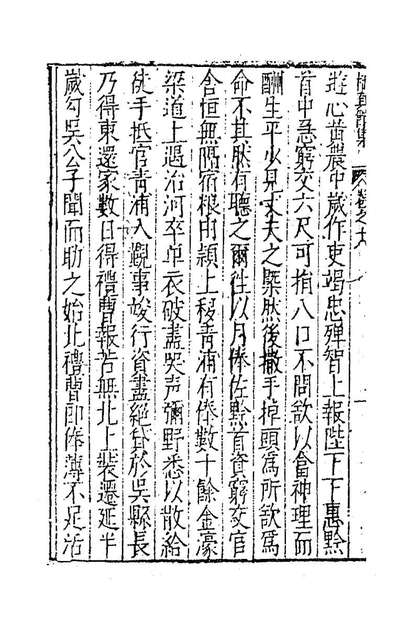 遊心酋農中歲作吏竭忠殫智上報陛下下惠黔
首中急窮交六尺可捐八口不問欲以畣神理而
酬生平少見丈夫之槩然後撒手掉頭爲所欲爲
命不其然有聽之爾徃以月俸佐黔首資窮交官
舍恒無隔宿根由潁上移青浦有俸數十餘金濠
梁道上遇治河卒卓衣破盖哭声彌野悉以散給
徒手抵官青浦入覲事竣行資盡絕貸於吳縣長
乃得東還家數日得禮曹報苦無北上裝遷延半
歲勾吳公子聞而助之始北禮曹郎俸薄不足活